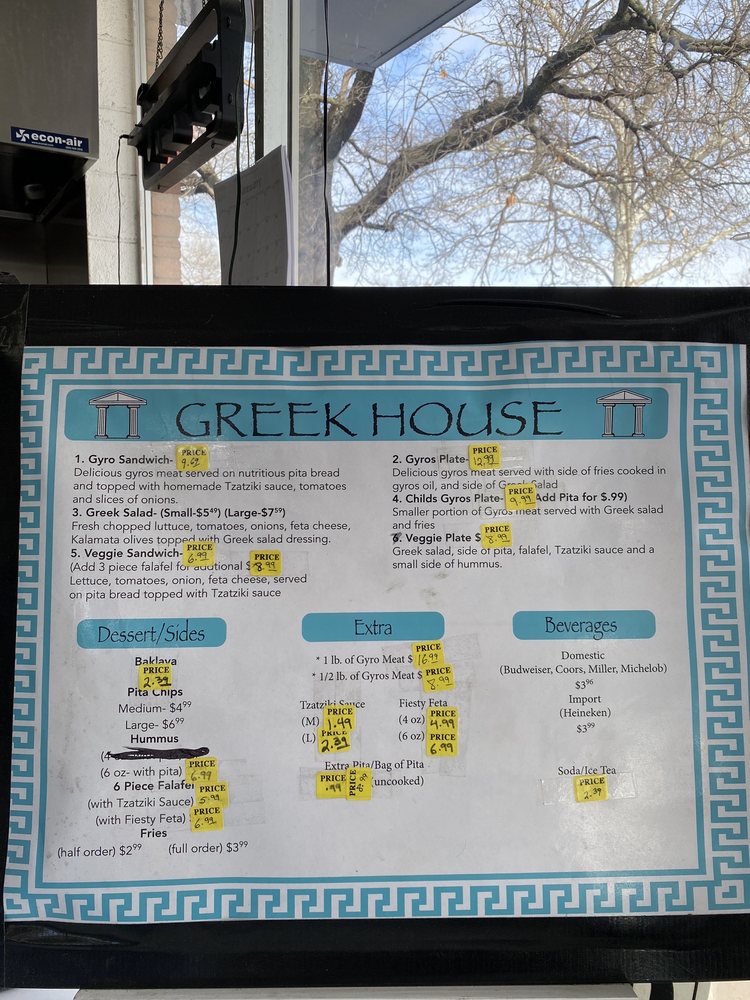 econ-air
GREEK HOUSE
1. Gyro Sandwich- PRICE 9.69
Delicious gyros meat served on nutritious pita bread
and topped with homemade Tzatziki sauce, tomatoes
and slices of onions.
3. Greek Salad- (Small-$5⁴⁹) (Large-$7⁵⁹)
Fresh chopped luttuce, tomatoes, onions, feta cheese,
Kalamata olives topped with Greek salad dressing.
5. Veggie Sandwich- PRICE 6.99
(Add 3 piece falafel for additional $ PRICE 8.99
Lettuce, tomatoes, onion, feta cheese, served
on pita bread topped with Tzatziki sauce
2. Gyros Plate- PRICE 12.99
Delicious gyros meat served with side of fries cooked in
gyros oil, and side of Greek Salad
4. Childs Gyros Plate- PRICE 9.99 Add Pita for $.99)
Smaller portion of Gyros meat served with Greek salad
and fries
6. Veggie Plate $ PRICE 8.99
Greek salad, side of pita, falafel, Tzatziki sauce and a
small side of hummus.
Dessert/Sides
Baklava
PRICE 2.39
Pita Chips
Medium- $4⁹⁹
Large- $6⁹⁹
Hummus
(4
(6 oz- with pita) PRICE 6.99
6 Piece Falafel
(with Tzatziki Sauce) PRICE 5.99
(with Fiesty Feta) PRICE 6.99
Fries
(half order) $2⁹⁹ (full order) $3⁹⁹
Extra
* 1 lb. of Gyro Meat $ PRICE 16.99
* 1/2 lb. of Gyros Meat $ PRICE 8.99
Tzatziki Sauce
(M) PRICE 1.49
(L) PRICE 2.39
Fiesty Feta
(4 oz) PRICE 4.99
(6 oz) PRICE 6.99
Extra Pita/Bag of Pita
PRICE .99 PRICE uncooked)
Beverages
Domestic
(Budweiser, Coors, Miller, Michelob)
$3⁹⁶
Import
(Heineken)
$3⁹⁹
Soda/Ice Tea
PRICE 2.39